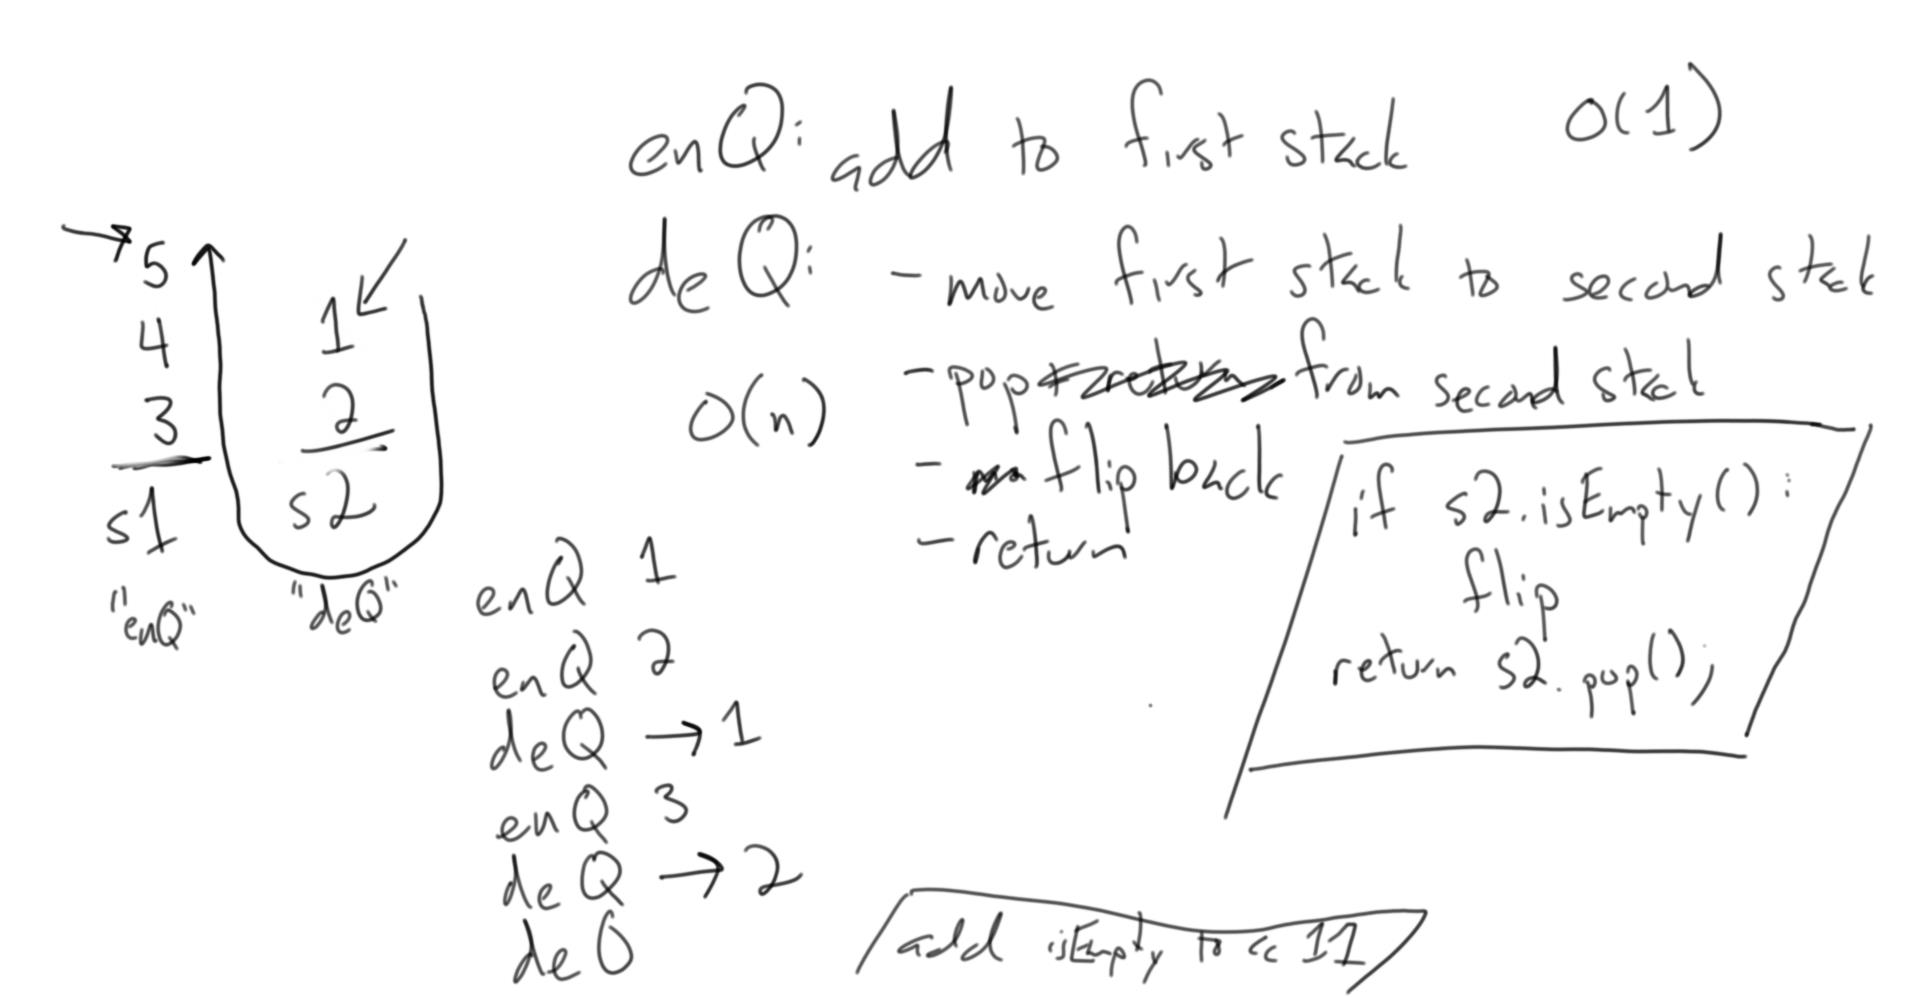 enQ: add to first stack O(1)
deQ: - move first stack to second stack
O(n)
- pop from second stack
- flip back
- return
5
4
3
s1
"enQ"
1
2
s2
"deQ"
enQ 1
enQ 2
deQ → 1
enQ 3
deQ → 2
deQ
if s2.isEmpty():
flip
return s2.pop();
add isEmpty to cc 11